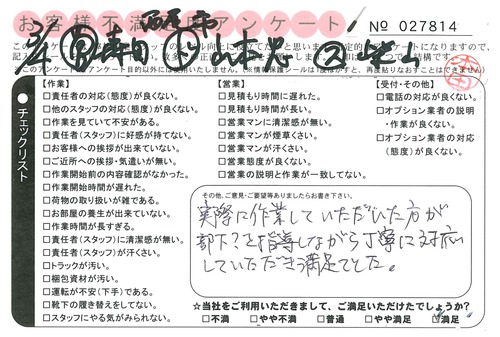 お客様不満足度アンケート
No 027814
チェックリスト
【作業】
□責任者の対応(態度)が良くない。
□他のスタッフの対応(態度)が良くない。
□作業を見ていて不安がある。
□責任者(スタッフ)に好感が持てない。
□お客様への挨拶が出来ていない。
□ご近所への挨拶・気遣いが無い。
□作業開始前の内容確認がなかった。
□作業開始時間が遅れた。
□荷物の取り扱いが雑である。
□お部屋の養生が出来ていない。
□作業時間が長すぎる。
□責任者(スタッフ)に清潔感が無い。
□責任者(スタッフ)が汗くさい。
□トラックが汚い。
□梱包資材が汚い。
□運転が不安(下手)である。
□靴下の履き替えをしてない。
□スタッフにやる気がみられない。
【営業】
□見積もり時間に遅れた。
□見積もり時間が長い。
□営業マンに清潔感が無い。
□営業マンが煙草くさい。
□営業マンが汗くさい。
□営業態度が良くない。
□営業の説明と作業が一致してない。
【受付・その他】
□電話の対応が良くない。
□オプション業者の説明
・作業が良くない。
□オプション業者の対応
(態度)が良くない。
その他、ご意見・ご要望等ありましたらお書き下さい。
実際に作業していただいた方が
部下?を指導しながら丁寧に対応
していただき満足でした。
☆当社をご利用いただきまして、ご満足いただけたでしょうか?
□不満 □やや不満 □普通 □やや満足 ☑満足